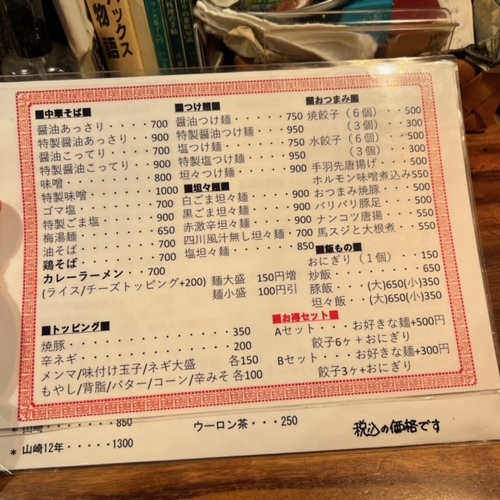 ックス
物語
■中華そば■
醤油あっさり・・・・・700
特製醤油あっさり・・・900
醤油こってり・・・・・700
特製醤油こってり・・・900
味噌・・・・・・・・・800
特製味噌・・・・・・・1000
ゴマ塩・・・・・・・・700
特製ごま塩・・・・・・900
梅湯麺・・・・・・・・650
油そば・・・・・・・・700
鶏そば
カレーラーメン・・・700
(ライス/チーズトッピング+200)
■つけ麺■
醤油つけ麺・・・・・・750
特製醤油つけ麺・・・・950
塩つけ麺・・・・・・・750
特製塩つけ麺・・・・・950
坦々つけ麺・・・・・・
■坦々麺■
白ごま坦々麺・・・・・900
黒ごま坦々麺・・・・・900
赤激辛坦々麺・・・・・900
四川風汁無し坦々麺・・700
塩坦々麺・・・・・・・850
麺大盛 150円増
麺小盛 100円引
■おつまみ■
焼餃子（６個）・・・・500
（３個）・・・・300
水餃子（６個）・・・・500
（３個）・・・・350
手羽先唐揚げ・・・・・500
ホルモン味噌煮込み550
おつまみ焼豚・・・・・500
パリパリ豚足・・・・・500
ナンコツ唐揚・・・・・550
馬スジと大根煮・・・・550
■飯もの■
おにぎり（１個）・・・150
炒飯・・・・・・・・・650
豚飯・・・(大)650(小)350
坦々飯・・(大)650(小)350
■トッピング■
焼豚・・・・・・・・・・・・350
辛ネギ・・・・・・・・・・・200
メンマ/味付け玉子/ネギ大盛 各150
もやし/背脂/バター/コーン/辛みそ 各100
■お得セット■
Aセット・・・お好きな麺+500円
餃子6ヶ+おにぎり
Bセット・・・お好きな麺+300円
餃子3ヶ+おにぎり
* 山崎・・・・・・850
* 山崎12年・・・・・1300
ウーロン茶・・・250
税込の価格です